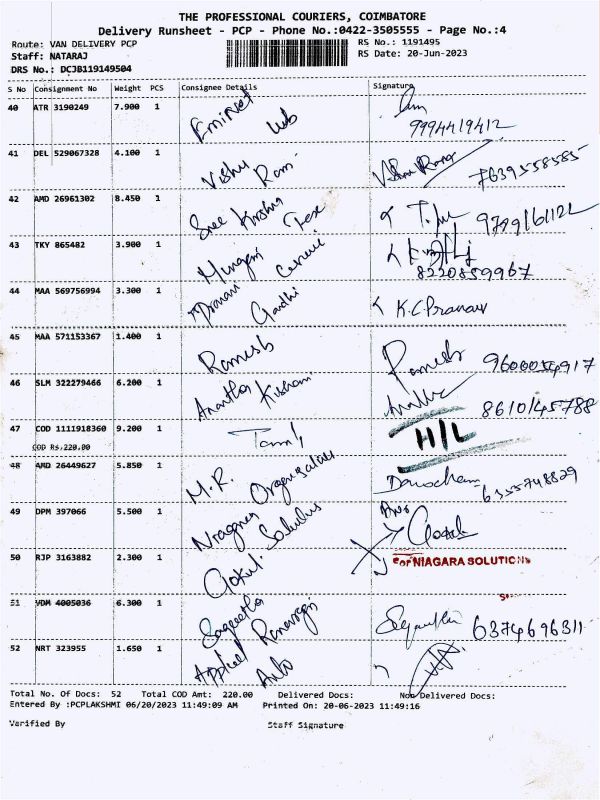 THE PROFESSIONAL COURIERS, COIMBATORE
Delivery Runsheet - PCP - Phone No.:0422-3505555 - Page No.:4
Route: VAN DELIVERY PCP RS No.: 1191495
Staff: NATARAJ RS Date: 20-Jun-2023
DRS No.: DCJB119149504
S No Consignment No Weight PCS Consignee Details Signature
40 ATR 3190249 7.900 1
9994419412
41 DEL 529067328 4.100 1 Vishu Ram 7639558585
42 AMD 26961302 8.450 1 Sree Krishna Tex
43 TKY 865482 3.900 1
8220859967
44 MAA 569756994 3.300 1 Pranavi Gandhi K.C.Pranav
45 MAA 571153367 1.400 1 Ramesh Ramesh 9600054917
46 SLM 322279466 6.200 1 Anantha Kishani 8610145788
47 COD 1111918360 9.200 1 Tamil H/L
COD Rs.220.00
48 AMD 26449627 5.850 1 M.R. 6355748829
49 DPM 397066 5.500 1
50 RJP 3163882 2.300 1 Gokul
For NIAGARA SOLUTIONS
51 VDM 4005036 6.300 1 Sageetha 6374696311
52 NRT 323955 1.650 1
Total No. Of Docs: 52 Total COD Amt: 220.00 Delivered Docs: Non Delivered Docs:
Entered By :PCPLAKSHMI 06/20/2023 11:49:09 AM Printed On: 20-06-2023 11:49:16
Verified By Staff Signature